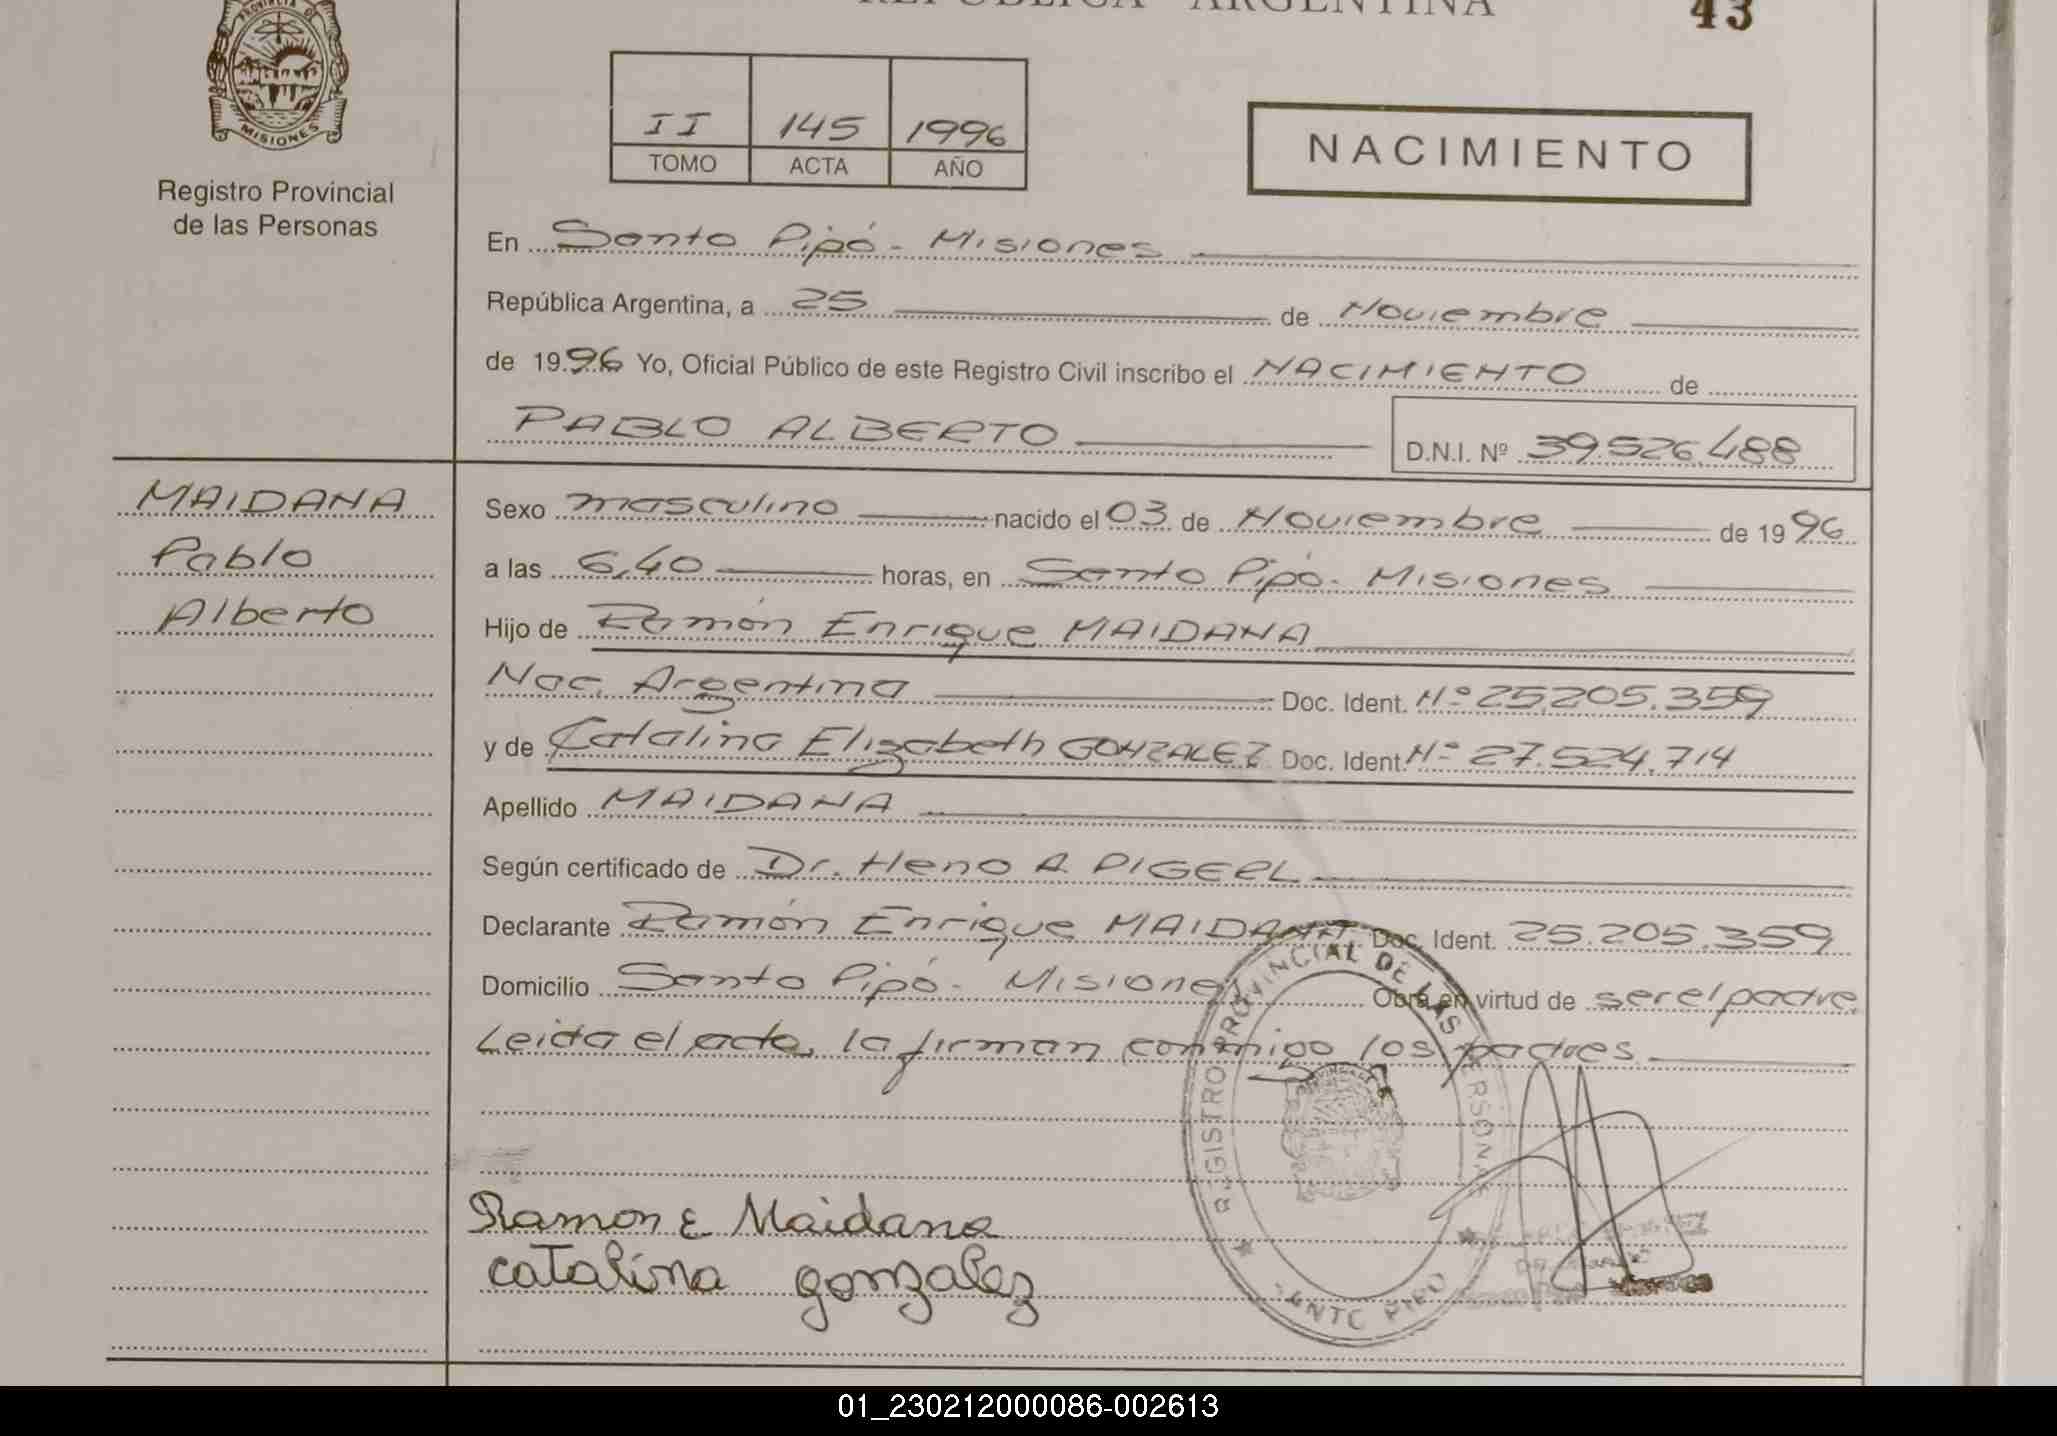 REPUBLICA ARGENTINA
43
PROVINCIA DE
MISIONES
Registro Provincial
de las Personas
II 145 1996
TOMO ACTA AÑO
NACIMIENTO
En Santo Pipó - Misiones
República Argentina, a 25 de Noviembre
de 1996 Yo, Oficial Público de este Registro Civil inscribo el NACIMIENTO de
PABLO ALBERTO D.N.I. Nº 39.526.488
MAIDANA
Pablo
Alberto
Sexo masculino nacido el 03 de Noviembre de 1996
a las 6,40 horas, en Santo Pipó - Misiones
Hijo de Ramón Enrique MAIDANA
Nac. Argentina Doc. Ident. Nº 25.205.359
y de Catalina Elizabeth GONZALEZ Doc. Ident. Nº 27.524.714
Apellido MAIDANA
Según certificado de Dr. Heno A.
Declarante Ramón Enrique MAIDANA Doc. Ident. 25.205.359
Domicilio Santo Pipó - Misiones Obra en virtud de ser el padre
Leida el acta, la firman conmigo los padres
REGISTRO PROVINCIAL DE LAS PERSONAS
SANTO PIPO
Ramon E Maidana
catalina gonzalez
01_230212000086-002613